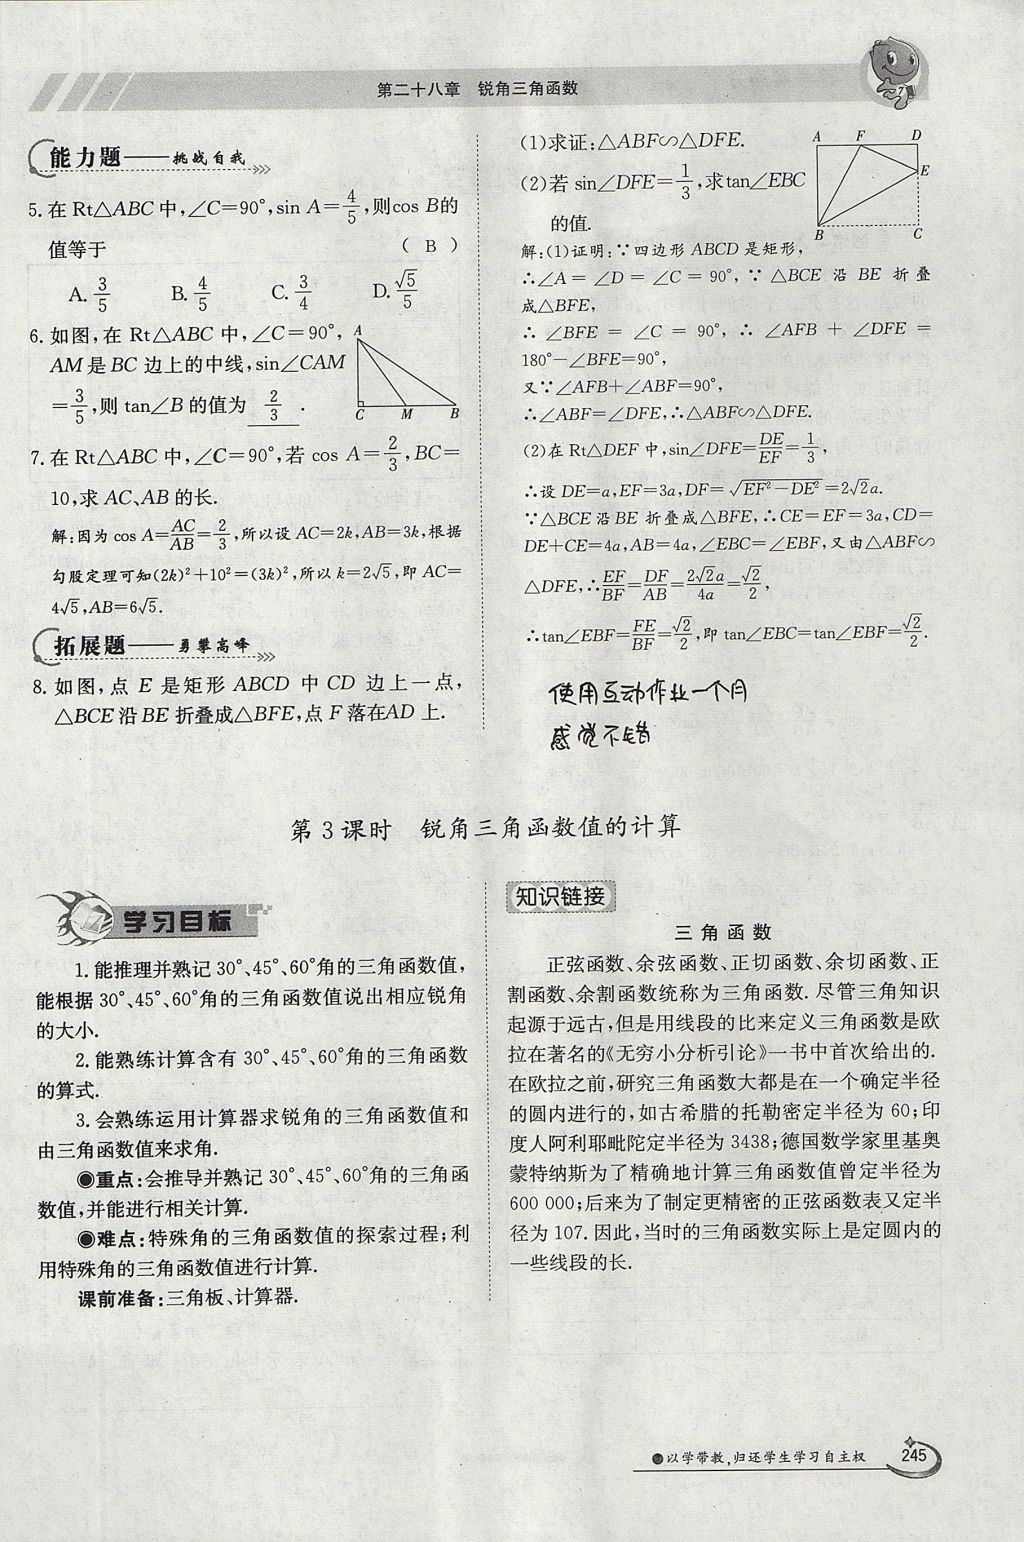 第二十八章 锐角三角函数
能力题——挑战自我
5.在 Rt△ABC 中,∠C=90°,sin A=4/5,则cos B的
值等于 ( B )
A. 3/5 B. 4/5 C. 3/4 D. √5/5
6.如图,在 Rt△ABC 中,∠C=90°,
AM 是 BC 边上的中线,sin∠CAM
=3/5,则 tan∠B 的值为 2/3 .
A
C M B
7.在 Rt△ABC 中,∠C=90°,若 cos A=2/3,BC=
10,求 AC、AB 的长.
解:因为 cos A=AC/AB=2/3,所以设 AC=2k,AB=3k,根据
勾股定理可知(2k)²+10²=(3k)²,所以 k=2√5,即 AC=
4√5,AB=6√5.
拓展题——勇攀高峰
8.如图,点 E 是矩形 ABCD 中 CD 边上一点,
△BCE 沿 BE 折叠成△BFE,点 F 落在AD 上.
(1)求证:△ABF∽△DFE.
(2)若 sin∠DFE=1/3,求tan∠EBC
的值.
A F D
E
B C
解:(1)证明:∵四边形 ABCD 是矩形,
∴∠A = ∠D = ∠C = 90°,∵ △BCE 沿 BE 折叠
成△BFE,
∴ ∠BFE = ∠C = 90°, ∴ ∠AFB + ∠DFE =
180°-∠BFE=90°,
又∵∠AFB+∠ABF=90°,
∴∠ABF=∠DFE,∴△ABF∽△DFE.
(2)在 Rt△DEF 中,sin∠DFE=DE/EF=1/3,
∴设 DE=a,EF=3a,DF=√(EF²-DE²)=2√2a.
∵△BCE 沿 BE 折叠成△BFE,∴CE=EF=3a,CD=
DE+CE=4a,AB=4a,∠EBC=∠EBF,又由△ABF∽
△DFE,∴EF/BF=DF/AB=2√2a/4a=√2/2,
∴tan∠EBF=FE/BF=√2/2,即 tan∠EBC=tan∠EBF=√2/2.
使用互动作业一个月
感觉不错
第 3 课时 锐角三角函数值的计算
学习目标
1.能推理并熟记 30°、45°、60°角的三角函数值,
能根据 30°、45°、60°角的三角函数值说出相应锐角
的大小.
2.能熟练计算含有 30°、45°、60°角的三角函数
的算式.
3.会熟练运用计算器求锐角的三角函数值和
由三角函数值来求角.
●重点:会推导并熟记 30°、45°、60°角的三角函
数值,并能进行相关计算.
●难点:特殊角的三角函数值的探索过程;利
用特殊角的三角函数值进行计算.
课前准备:三角板、计算器.
知识链接
三角函数
正弦函数、余弦函数、正切函数、余切函数、正
割函数、余割函数统称为三角函数.尽管三角知识
起源于远古,但是用线段的比来定义三角函数是欧
拉在著名的《无穷小分析引论》一书中首次给出的.
在欧拉之前,研究三角函数大都是在一个确定半径
的圆内进行的,如古希腊的托勒密定半径为 60;印
度人阿利耶毗陀定半径为 3438;德国数学家里基奥
蒙特纳斯为了精确地计算三角函数值曾定半径为
600 000;后来为了制定更精密的正弦函数表又定半
径为 107.因此,当时的三角函数实际上是定圆内的
一些线段的长.
●以学带教,归还学生学习自主权
245